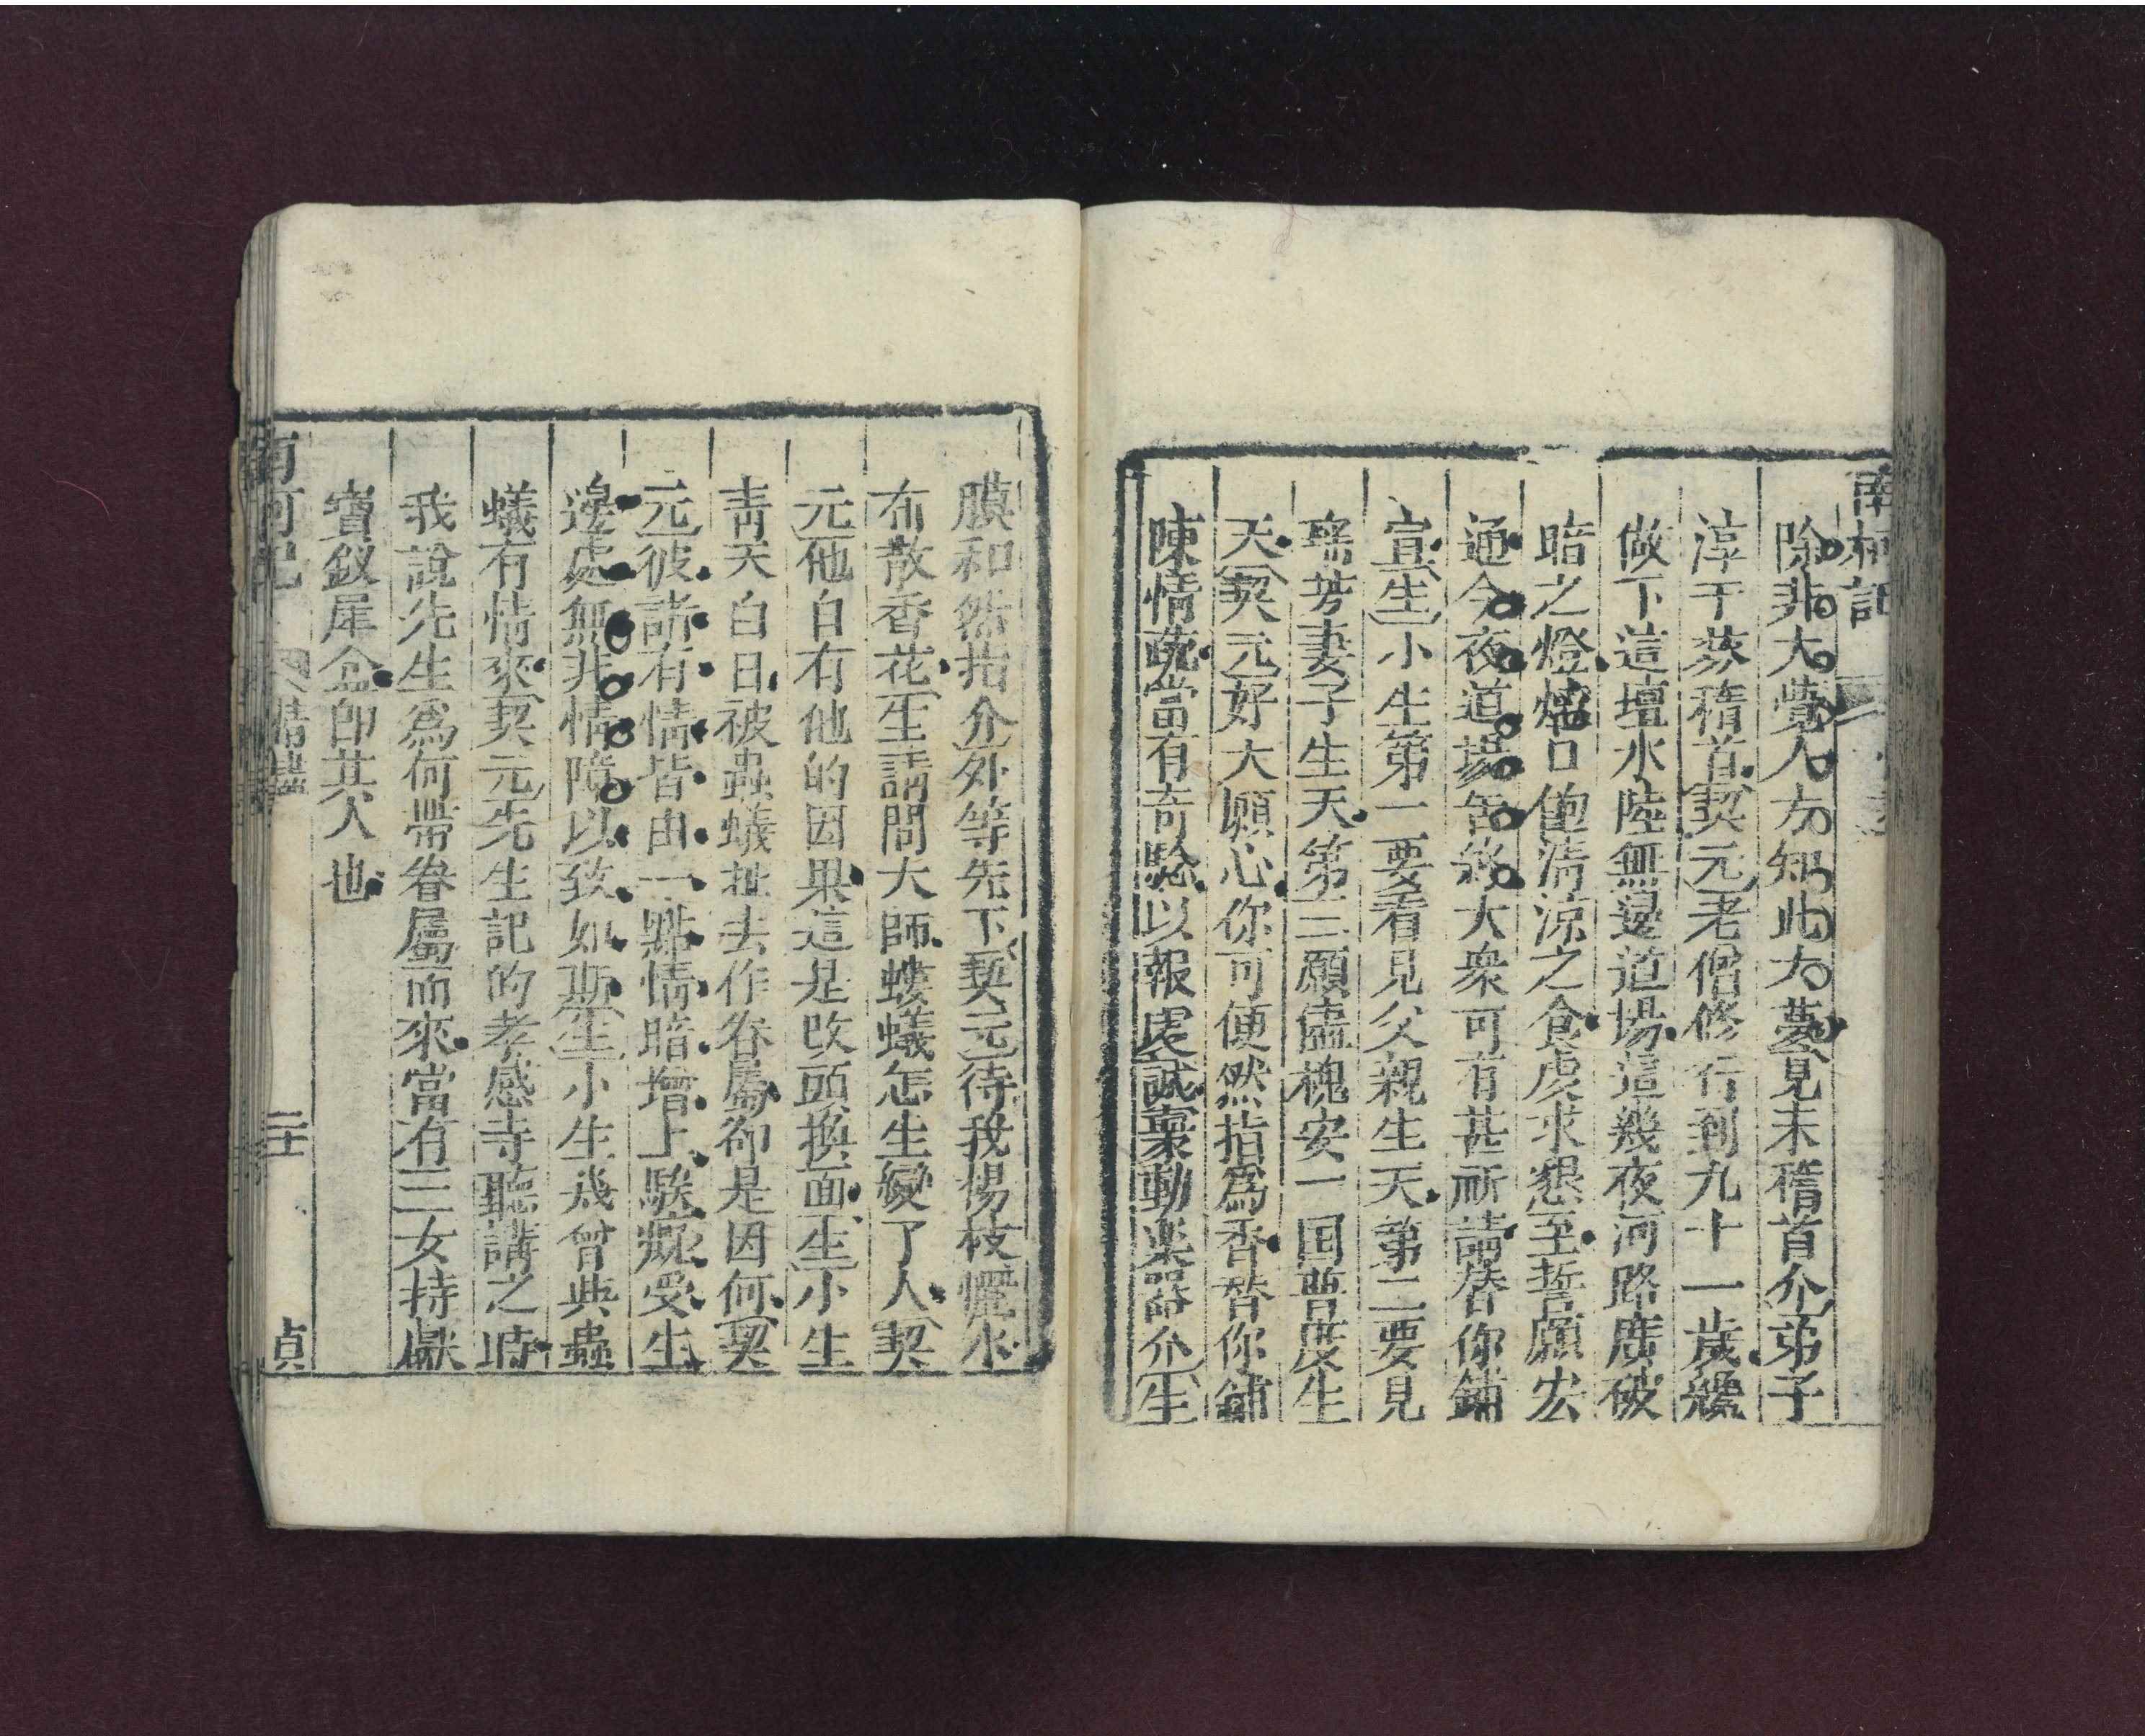 南柯記
除非大覺人方知此大夢見末稽首介弟子
淳于棼稽首契元老僧修行到九十一歲纔
做下這壇水陸無邊道場這幾夜河路廣破
暗之燈焰口飽清凉之食虔求懇至誓願宏
通今夜道場告終大衆可有甚祈請替你鋪
宣生小生第一要看見父親生天第二要見
瑤芳妻子生天第三願儘槐安一国普度生
天契元好大願心你可便然指爲香替你鋪
陳情疏當有奇驗以報虔誠稟動樂器介生
膜和然指介外等先下契元待我楊枝灑水
布散香花生請問大師螻蟻怎生變了人契
元他自有他的因果這是改頭換面生小生
青天白日被蟲蟻扯去作眷屬卻是因何契
元彼諸有情皆由一點情暗增上騃癡受生
邊處無非情障以致如斯生小生幾曾與蟲
蟻有情來契元先生記的孝感寺聽講之時
我說先生爲何帶眷屬而來當有三女持獻
寶釵犀盒即其人也
南柯記 情盡 二十 貞